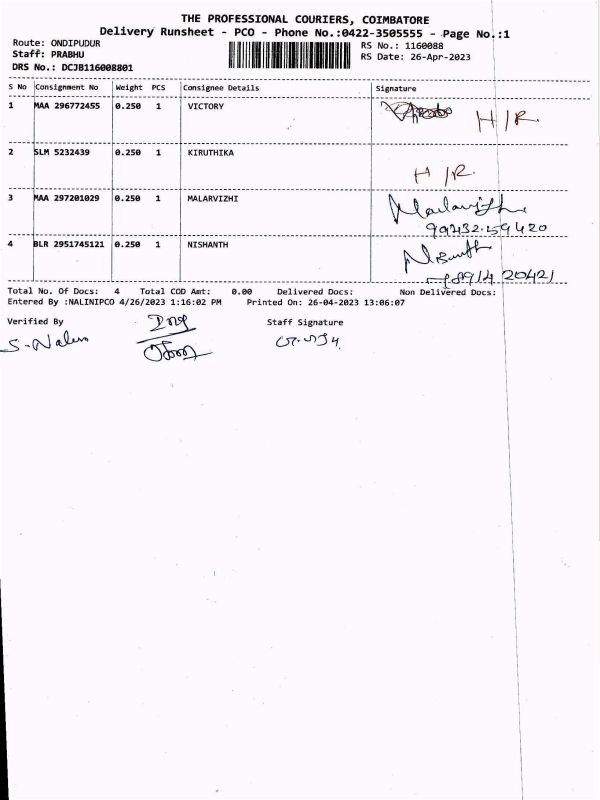 THE PROFESSIONAL COURIERS, COIMBATORE
Delivery Runsheet - PCO - Phone No.:0422-3505555 - Page No.:1
Route: ONDIPUDUR
RS No.: 1160088
Staff: PRABHU
RS Date: 26-Apr-2023
DRS No.: DCJB116008801
S No Consignment No Weight PCS Consignee Details Signature
1 MAA 296772455 0.250 1 VICTORY H/R.
2 SLM 5232439 0.250 1 KIRUTHIKA H/R.
3 MAA 297201029 0.250 1 MALARVIZHI
99432.59420
4 BLR 2951745121 0.250 1 NISHANTH Nisanth
Total No. Of Docs: 4 Total COD Amt: 0.00 Delivered Docs: Non Delivered Docs:
Entered By :NALINIPCO 4/26/2023 1:16:02 PM Printed On: 26-04-2023 13:06:07
Verified By Staff Signature